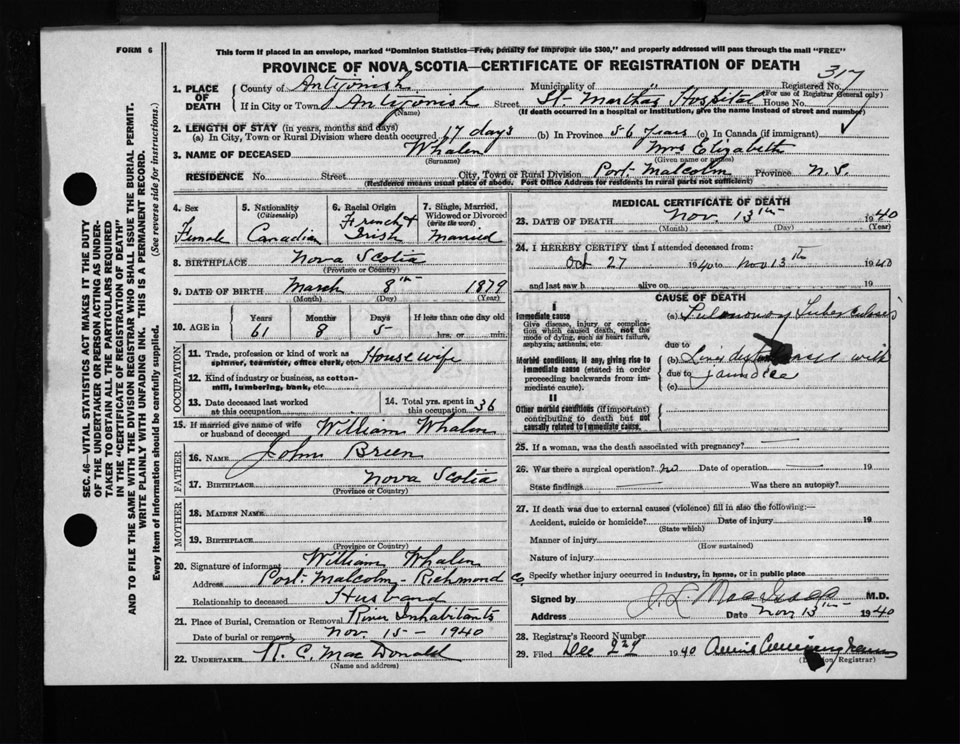 FORM 6
This form if placed in an envelope, marked "Dominion Statistics—Free, penalty for improper use $300," and properly addressed will pass through the mail "FREE"
PROVINCE OF NOVA SCOTIA—CERTIFICATE OF REGISTRATION OF DEATH
Registered No. 317
(For use of Registrar General only)
1. PLACE OF DEATH
County of Antigonish Municipality of "
If in City or Town Antigonish Street St. Martha's Hospital House No.
(Name) (If death occurred in a hospital or institution, give the name instead of street and number)
2. LENGTH OF STAY (in years, months and days)
(a) In City, Town or Rural Division where death occurred 17 days (b) In Province 56 years (c) In Canada (if immigrant)
3. NAME OF DECEASED Whalen Mrs Elizabeth
(Surname) (Given name or names)
RESIDENCE No. Street City, Town or Rural Division Port Malcolm Province N.S.
(Residence means usual place of abode. Post Office Address for residents in rural parts not sufficient)
4. Sex Female
5. Nationality (Citizenship) Canadian
6. Racial Origin French & Irish
7. Single, Married, Widowed or Divorced (Write the word) Married
8. BIRTHPLACE Nova Scotia
(Province or Country)
9. DATE OF BIRTH March 8th 1879
(Month) (Day) (Year)
10. AGE in Years Months Days If less than one day old
61 8 5 hrs. or min.
OCCUPATION
11. Trade, profession or kind of work as spinner, teamster, office clerk, etc. Housewife
12. Kind of industry or business, as cotton-mill, lumbering, bank, etc.
13. Date deceased last worked at this occupation
14. Total yrs. spent in this occupation 36
15. If married give name of wife or husband of deceased William Whalen
FATHER
16. NAME John Breen
17. BIRTHPLACE Nova Scotia
(Province or Country)
MOTHER
18. MAIDEN NAME
19. BIRTHPLACE
(Province or Country)
20. Signature of informant William Whalen
Address Port Malcolm - Richmond Co.
Relationship to deceased Husband
21. Place of Burial, Cremation or Removal River Inhabitants
Date of burial or removal Nov. 15 - 1940
22. UNDERTAKER R. C. MacDonald
(Name and address)
MEDICAL CERTIFICATE OF DEATH
23. DATE OF DEATH Nov. 13th 1940
(Month) (Day) (Year)
24. I HEREBY CERTIFY that I attended deceased from:
Oct 27 1940 to Nov 13th 1940
and last saw h alive on 19
CAUSE OF DEATH
I
Immediate cause
Give disease, injury or complication which caused death, not the mode of dying, such as heart failure, asphyxia, asthenia, etc.
(a) Pulmonary Tuberculosis
due to
Morbid conditions, if any, giving rise to immediate cause (stated in order proceeding backwards from immediate cause).
(b) Liver with
due to jaundice
(c)
II
Other morbid conditions (if important) contributing to death but not causally related to immediate cause.
25. If a woman, was the death associated with pregnancy? —
26. Was there a surgical operation? no Date of operation — 19
State findings — Was there an autopsy?
27. If death was due to external causes (violence) fill in also the following:—
Accident, suicide or homicide? Date of injury 19
(State which)
Manner of injury
(How sustained)
Nature of injury
Specify whether injury occurred in industry, in home, or in public place
Signed by M.D.
Address Date Nov 13th 1940
28. Registrar's Record Number
29. Filed Dec 1940
(Division Registrar)
SEC. 46—VITAL STATISTICS ACT MAKES IT THE DUTY
OF THE UNDERTAKER OR PERSON ACTING AS UNDER-
TAKER TO OBTAIN ALL THE PARTICULARS REQUIRED
IN THE "CERTIFICATE OF REGISTRATION OF DEATH"
AND TO FILE THE SAME WITH THE DIVISION REGISTRAR WHO SHALL ISSUE THE BURIAL PERMIT.
WRITE PLAINLY WITH UNFADING INK. THIS IS A PERMANENT RECORD.
Every item of Information should be carefully supplied. (See reverse side for instructions.)